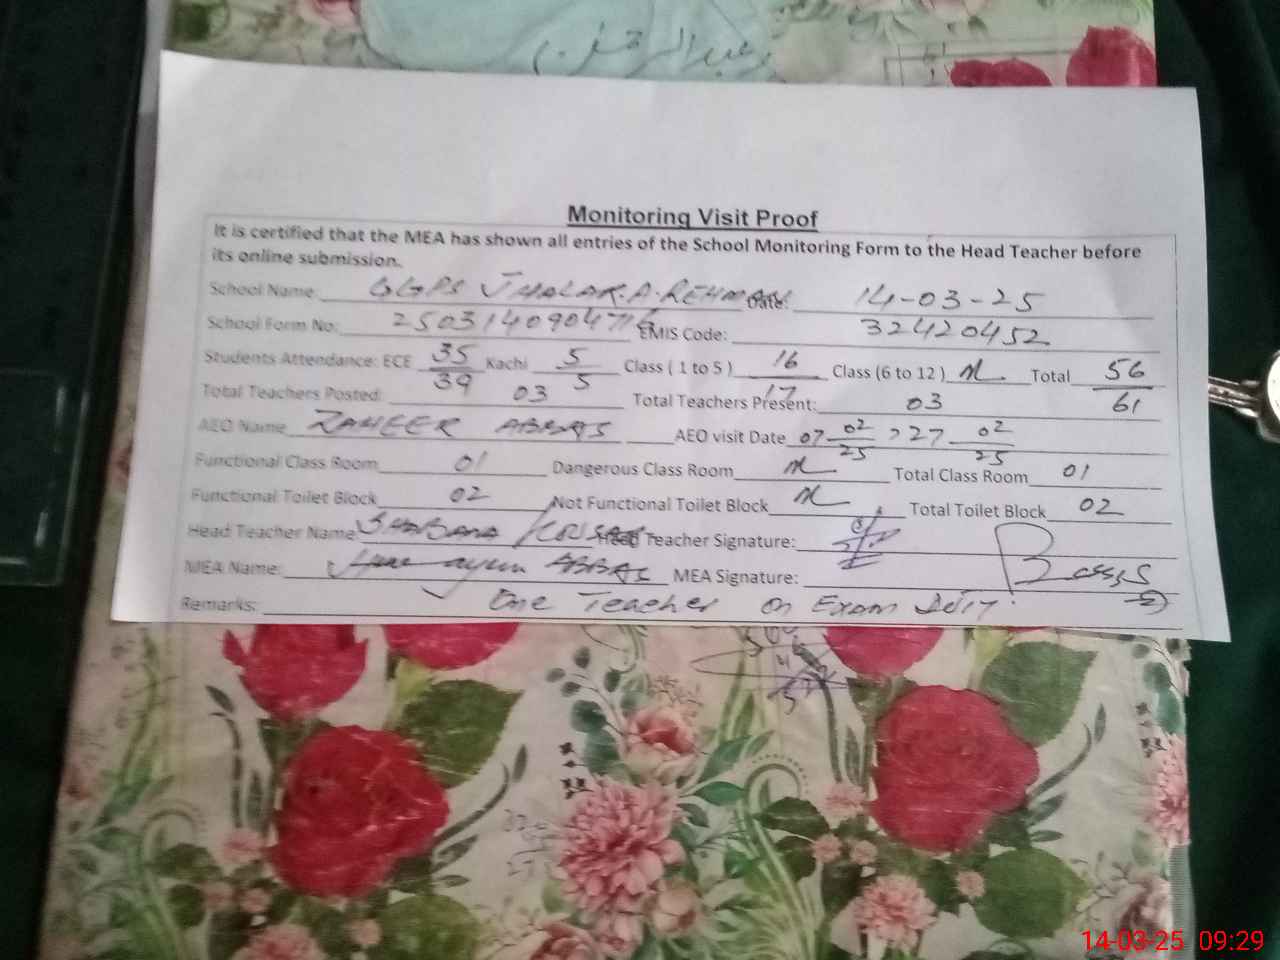 عبدالرحمن
Monitoring Visit Proof
It is certified that the MEA has shown all entries of the School Monitoring Form to the Head Teacher before
its online submission.
School Name GGPS JHALAR.A.REHMAN Date: 14-03-25
School Form No: EMIS Code: 32420452
Students Attendance: ECE 35/39 Kachi 5/5 Class ( 1 to 5 ) 16/17 Class (6 to 12 ) N Total 56/61
Total Teachers Posted: 03 Total Teachers Present: 03
AEO Name ZAHEER ABBAS AEO visit Date 07 02/25 , 27 02/25
Functional Class Room 01 Dangerous Class Room N Total Class Room 01
Functional Toilet Block 02 Not Functional Toilet Block N Total Toilet Block 02
Head Teacher Name SHABANA KAUSAR Head Teacher Signature:
MEA Name: ABBAS MEA Signature:
Remarks: One Teacher on Exam Duty.
14-03-25 09:29